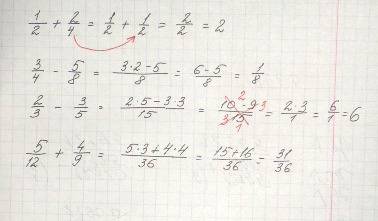 1/2 + 2/4 = 1/2 + 1/2 = 2/2 = 2
3/4 - 5/8 = (3·2-5)/8 = (6-5)/8 = 1/8
2/3 - 3/5 = (2·5-3·3)/15 = (10 2 - 9 3)/(3 15 1) = (2·3)/1 = 6/1 = 6
5/12 + 4/9 = (5·3+4·4)/36 = (15+16)/36 = 31/36